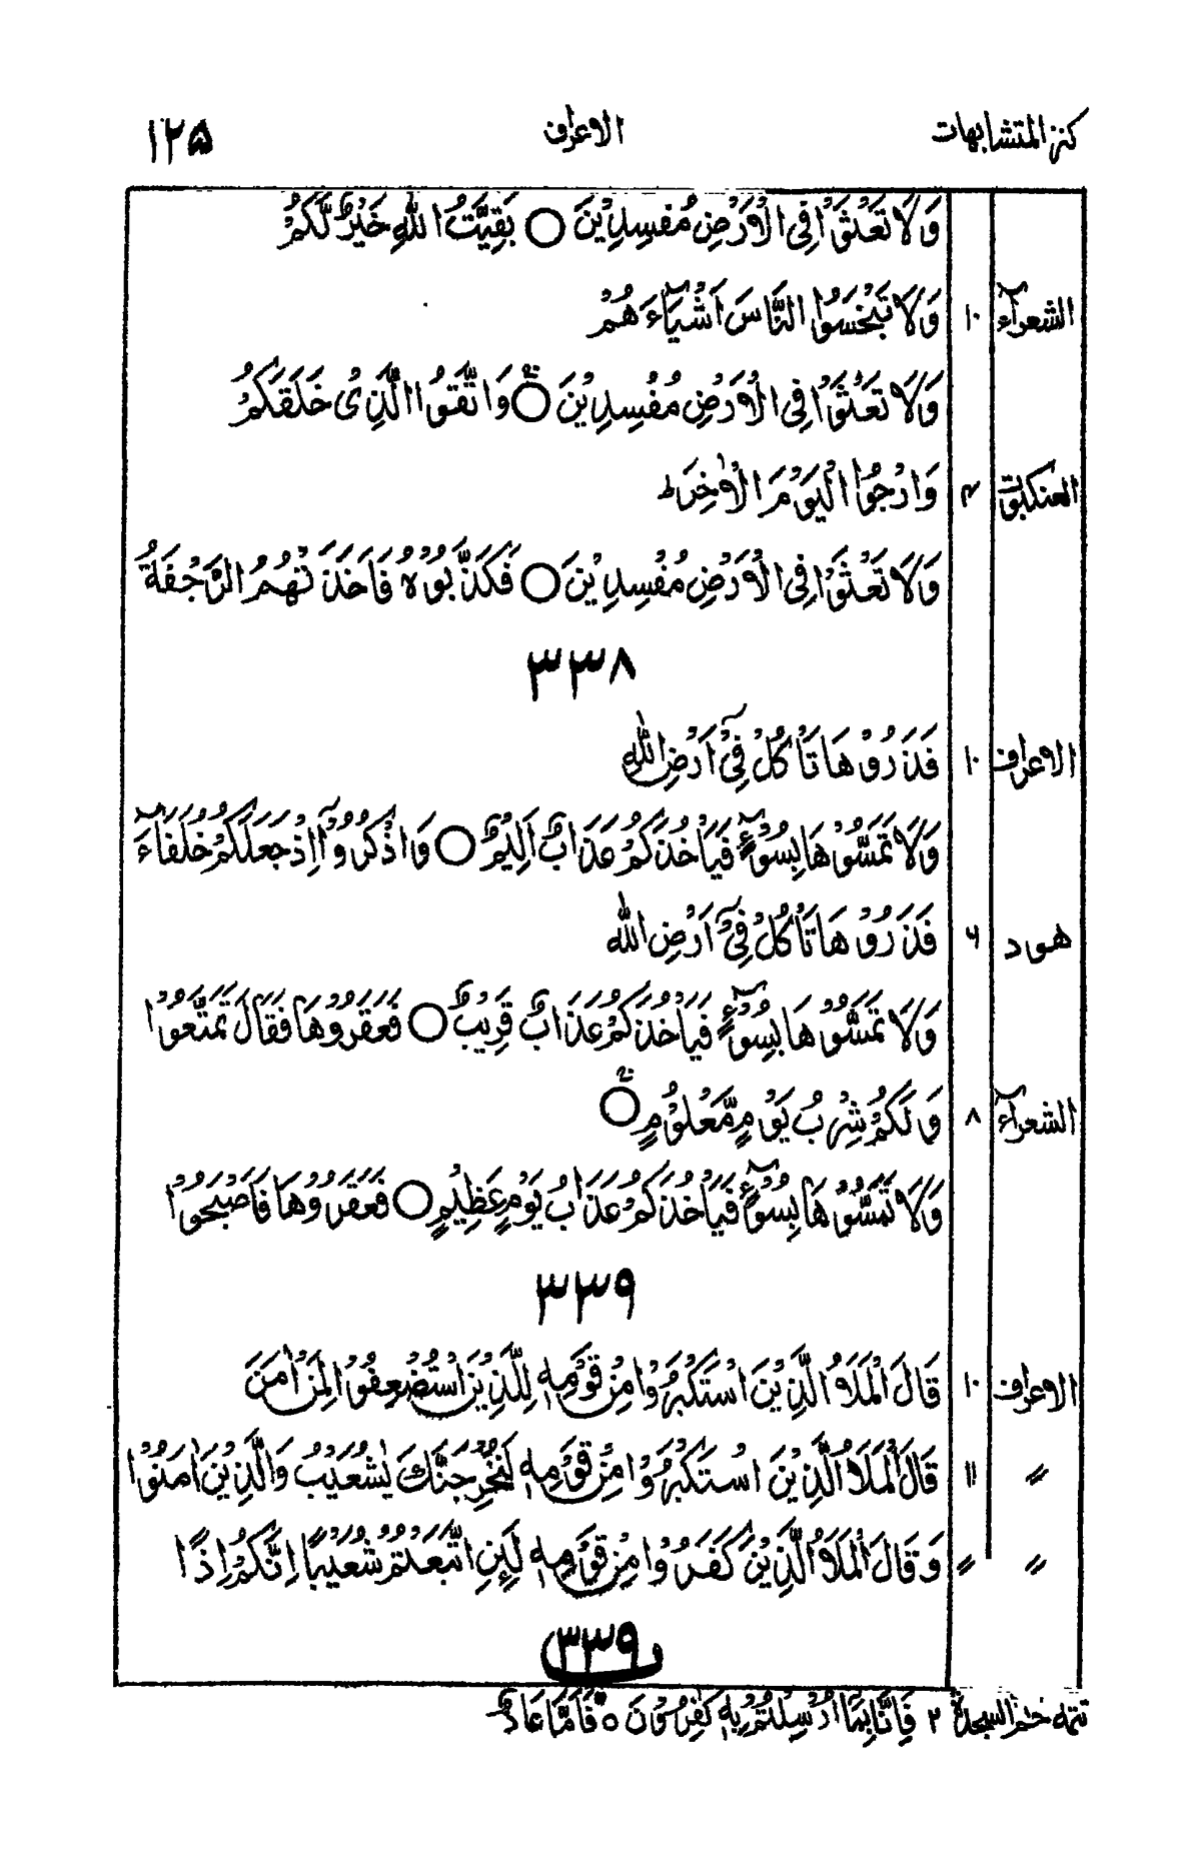 كنز المتشابهات الاعراف ١٢۵
وَلَا تَعْثَوْا فِى الْاَرْضِ مُفْسِدِيْنَ ○ بَقِيَّتُ اللّٰهِ خَيْرٌ لَّكُمْ
الشعرآء ١٠ وَلَا تَبْخَسُوا النَّاسَ اَشْيَآءَهُمْ
وَلَا تَعْثَوْا فِى الْاَرْضِ مُفْسِدِيْنَ ○ وَاتَّقُوا الَّذِىْ خَلَقَكُمْ
العنكبوت ۴ وَارْجُوا الْيَوْمَ الْاٰخِرَ ط
وَلَا تَعْثَوْا فِى الْاَرْضِ مُفْسِدِيْنَ ○ فَكَذَّبُوْهُ فَاَخَذَتْهُمُ الرَّجْفَةُ
٣٣٨
الاعراف ١٠ فَذَرُوْهَا تَاْكُلْ فِىْٓ اَرْضِ اللّٰهِ
وَلَا تَمَسُّوْهَا بِسُوْٓءٍ فَيَاْخُذَكُمْ عَذَابٌ اَلِيْمٌ ○ وَاذْكُرُوْٓا اِذْ جَعَلَكُمْ خُلَفَآءَ
هود ۶ فَذَرُوْهَا تَاْكُلْ فِىْٓ اَرْضِ اللّٰه
وَلَا تَمَسُّوْهَا بِسُوْٓءٍ فَيَاْخُذَكُمْ عَذَابٌ قَرِيْبٌ ○ فَعَقَرُوْهَا فَقَالَ تَمَتَّعُوْا
الشعرآء ٨ وَلَكُمْ شِرْبُ يَوْمٍ مَّعْلُوْمٍ ○
وَلَا تَمَسُّوْهَا بِسُوْٓءٍ فَيَاْخُذَكُمْ عَذَابُ يَوْمٍ عَظِيْمٍ ○ فَعَقَرُوْهَا فَاَصْبَحُوْا
٣٣٩
الاعراف ١٠ قَالَ الْمَلَاُ الَّذِيْنَ اسْتَكْبَرُوْا مِنْ قَوْمِهٖ لِلَّذِيْنَ اسْتُضْعِفُوْا لِمَنْ اٰمَنَ
〃 ١١ قَالَ الْمَلَاُ الَّذِيْنَ اسْتَكْبَرُوْا مِنْ قَوْمِهٖ لَنُخْرِجَنَّكَ يٰشُعَيْبُ وَالَّذِيْنَ اٰمَنُوْا
〃 〃 وَقَالَ الْمَلَاُ الَّذِيْنَ كَفَرُوْا مِنْ قَوْمِهٖ لَئِنِ اتَّبَعْتُمْ شُعَيْبًا اِنَّكُمْ اِذًا
٣٣٩
تتمه حٰم السجدة ٢ فَاِنَّا بِمَا اُرْسِلْتُمْ بِهٖ كٰفِرُوْنَ ○ فَاَمَّا عَادٌ